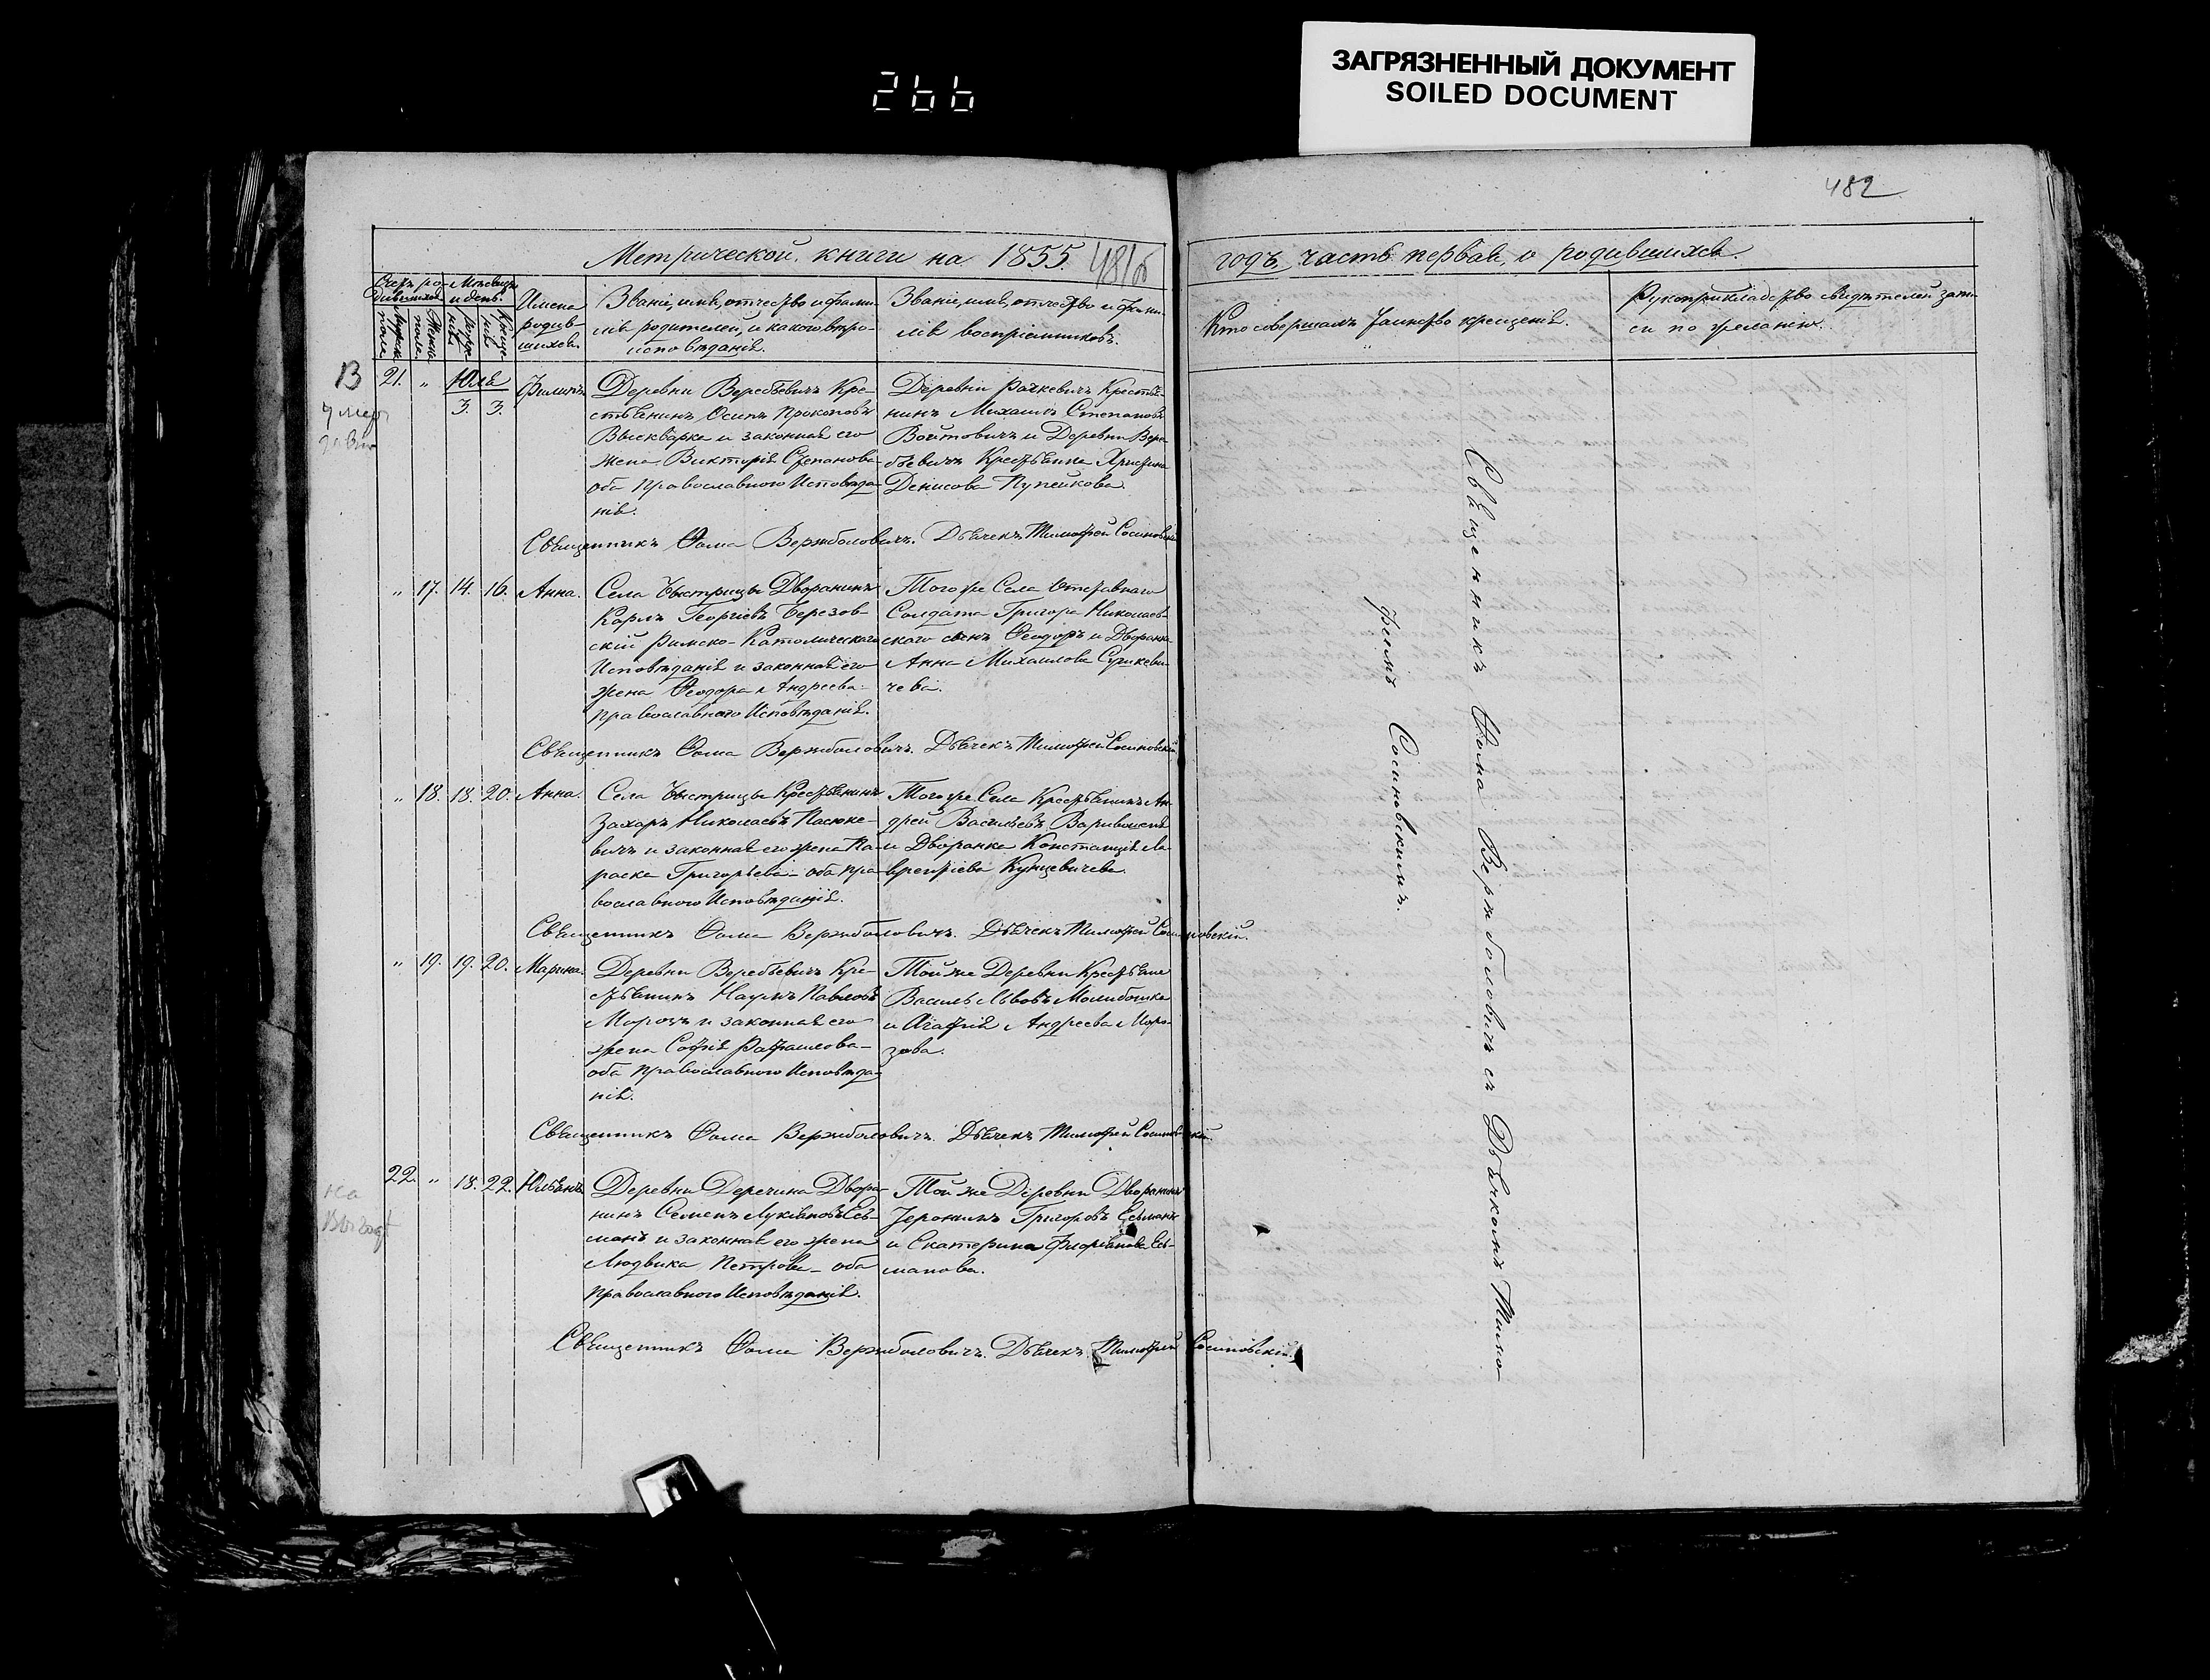 266
ЗАГРЯЗНЕННЫЙ ДОКУМЕНТ
SOILED DOCUMENT
482
Метрической книги на 1855.
481об
годъ, часть первая, о родившихся.
Счетъ ро-
дившихся
Мѣсяцъ
и день.
Мужска
пола
Женска
пола
рожде
нія
Креще
нія
Имена
родив-
шихся.
Званіе, имя, отчество и фами-
лія родителей, и какого вѣро-
исповѣданія.
Званіе, имя, отчество и фами-
лія воспріемниковъ.
Кто совершалъ таинство крещенія.
Рукоприкладство свидѣтелей запи-
си по желанію.
В
21. „ Юля
3. 3.
Филипъ
Деревни Веребьевичъ Кре-
стьянинъ Осипъ Прокоповъ
Выскварка и законная его
жена Викторія Степанова
оба Православного Исповѣда-
нія.
Деревни Рачкевичъ Крестья-
нинъ Михаилъ Степановъ
Войтовичъ и Деревни Вере-
бьевичъ Крестьянка Христина
Денисова Пупейкова.
Священникъ Ѳома Вержболовичъ. Дьячекъ Тимоѳей Сосиновскій
„ 17. 14. 16. Анна.
Села Быстрицы Дворянинъ
Карлъ Георгіевъ Березов-
скій Римско-Католического
Исповѣданія и законная его
жена Ѳеодора Андреева-
православного Исповѣданія.
Того же Села Отставного
Солдата Григора Николаев-
ского сынъ Ѳеодоръ и Дворянка
Анна Михаилова
чева.
Священникъ Ѳома Вержболовичъ. Дьячекъ Тимоѳей Сосиновскій
„ 18. 18. 20. Анна.
Села Быстрицы Крестьянинъ
Захаръ Николаевъ Пасюке-
вичъ и законная его жена Па-
раска Григорьева - оба Пра-
вославного Исповѣданія.
Того же Села Крестьянинъ Ан-
дрей Васильевъ
и Дворянка Констанція Ла-
врентіева Кунцевичева.
Священникъ Ѳома Вержболовичъ. Дьячекъ Тимоѳей Сосиновскій.
„ 19. 19. 20. Марина.
Деревни Веребьевичъ Кре-
стьянинъ Наумъ Павловъ
Морозъ и законная его
жена Софія Рафаилова-
оба православного Исповѣда-
нія.
Той же Деревни Крестьяне
Василь Львовъ Молибошка
и Агафія Андреева Моро-
зова.
Священникъ Ѳома Вержболовичъ. Дьячекъ Тимоѳей Сосиновскій
22. „ 18. 22. Юльянъ
Деревни Деречина Дворя-
нинъ Семенъ Лукіановъ Есь-
манъ и законная его жена
Людвика Петрова - оба
православного Исповѣданія.
Той же Деревни Дворянинъ
Іеронимъ Григоровъ Есьманъ
и Екатерина Флоріанова Есь-
манова.
Священникъ Ѳома Вержболовичъ. Дьячекъ Тимоѳей Сосиновскій.
Священникъ Ѳома Вержболовичъ съ Дьячкомъ Тимо-
ѳеемъ Сосиновскимъ.